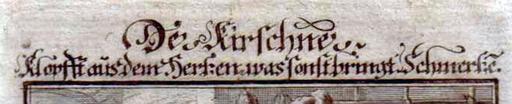 Der Kirschner.
Klopfft aus dem Hertzen, was sonst bringt Schmertzen.